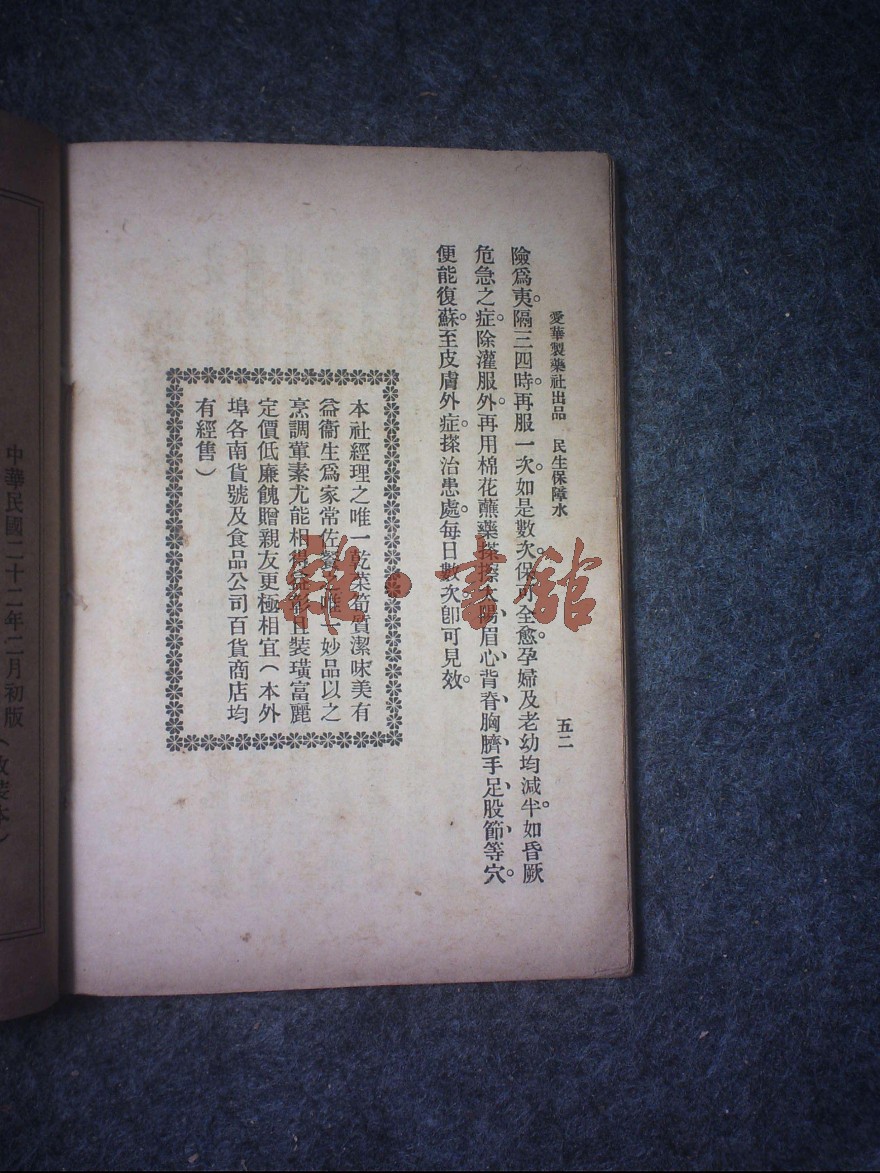 愛華製藥社出品　民生保障水　五二
險爲夷。隔三四時。再服一次。如是數次。保可全愈。孕婦及老幼均減半。如昏厥
危急之症。除灌服外。再用棉花蘸藥搽擦太陽、眉心、背脊、胸臍、手足、股節、等穴。
便能復蘇。至皮膚外症。搽治患處。每日數次。卽可見效。
本社經理之唯一乾菜筍質潔味美有
益衞生爲家常佐餐之唯一妙品以之
烹調葷素尤能相得益彰且裝璜富麗
定價低廉餽贈親友更極相宜（本外
埠各南貨號及食品公司百貨商店均
有經售）
中華民國二十二年二月初版（改裝本）
雜·書館